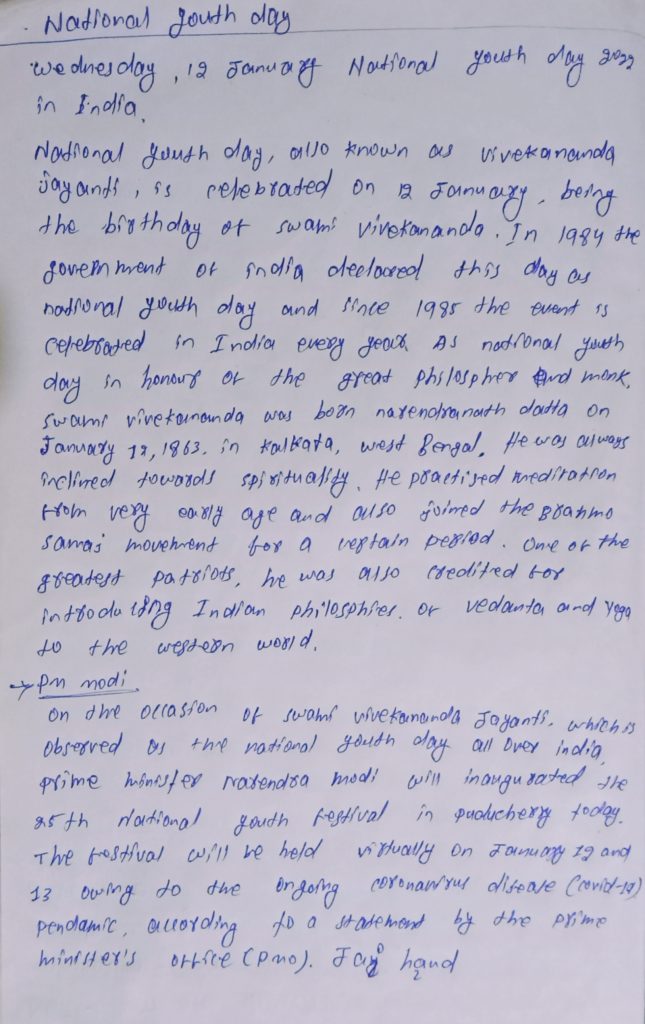 National youth day
Wednesday, 12 January National youth day 2022
in India.
National youth day, also known as vivekananda
Jayanti, is celebrated on 12 January, being
the birthday of swami vivekananda. In 1984 the
government of india declared this day as
national youth day and since 1985 the event is
celebrated in India every year. As national youth
day in honour of the great philospher and monk,
swami vivekananda was born narendranath datta on
January 12, 1863. in kalkata, west Bengal. He was always
inclined towards spirituality. He practised meditation
from very early age and also joined the Brahmo
samaj movement for a certain period. One of the
greatest patriots, he was also credited for
introducing Indian philosphies. of vedanta and yoga
to the western world.
→ Pm modi
on the occasion of swami vivekananda Jayanti. which is
observed as the national youth day all over india,
prime minister narendra modi will inaugurated the
25th national youth festival in puducherry today.
The festival will be held virtually on January 12 and
13 owing to the ongoing coronavirus disease (covid-19)
pendamic, according to a statement by the prime
minister's office (pmo). Jay hand
2